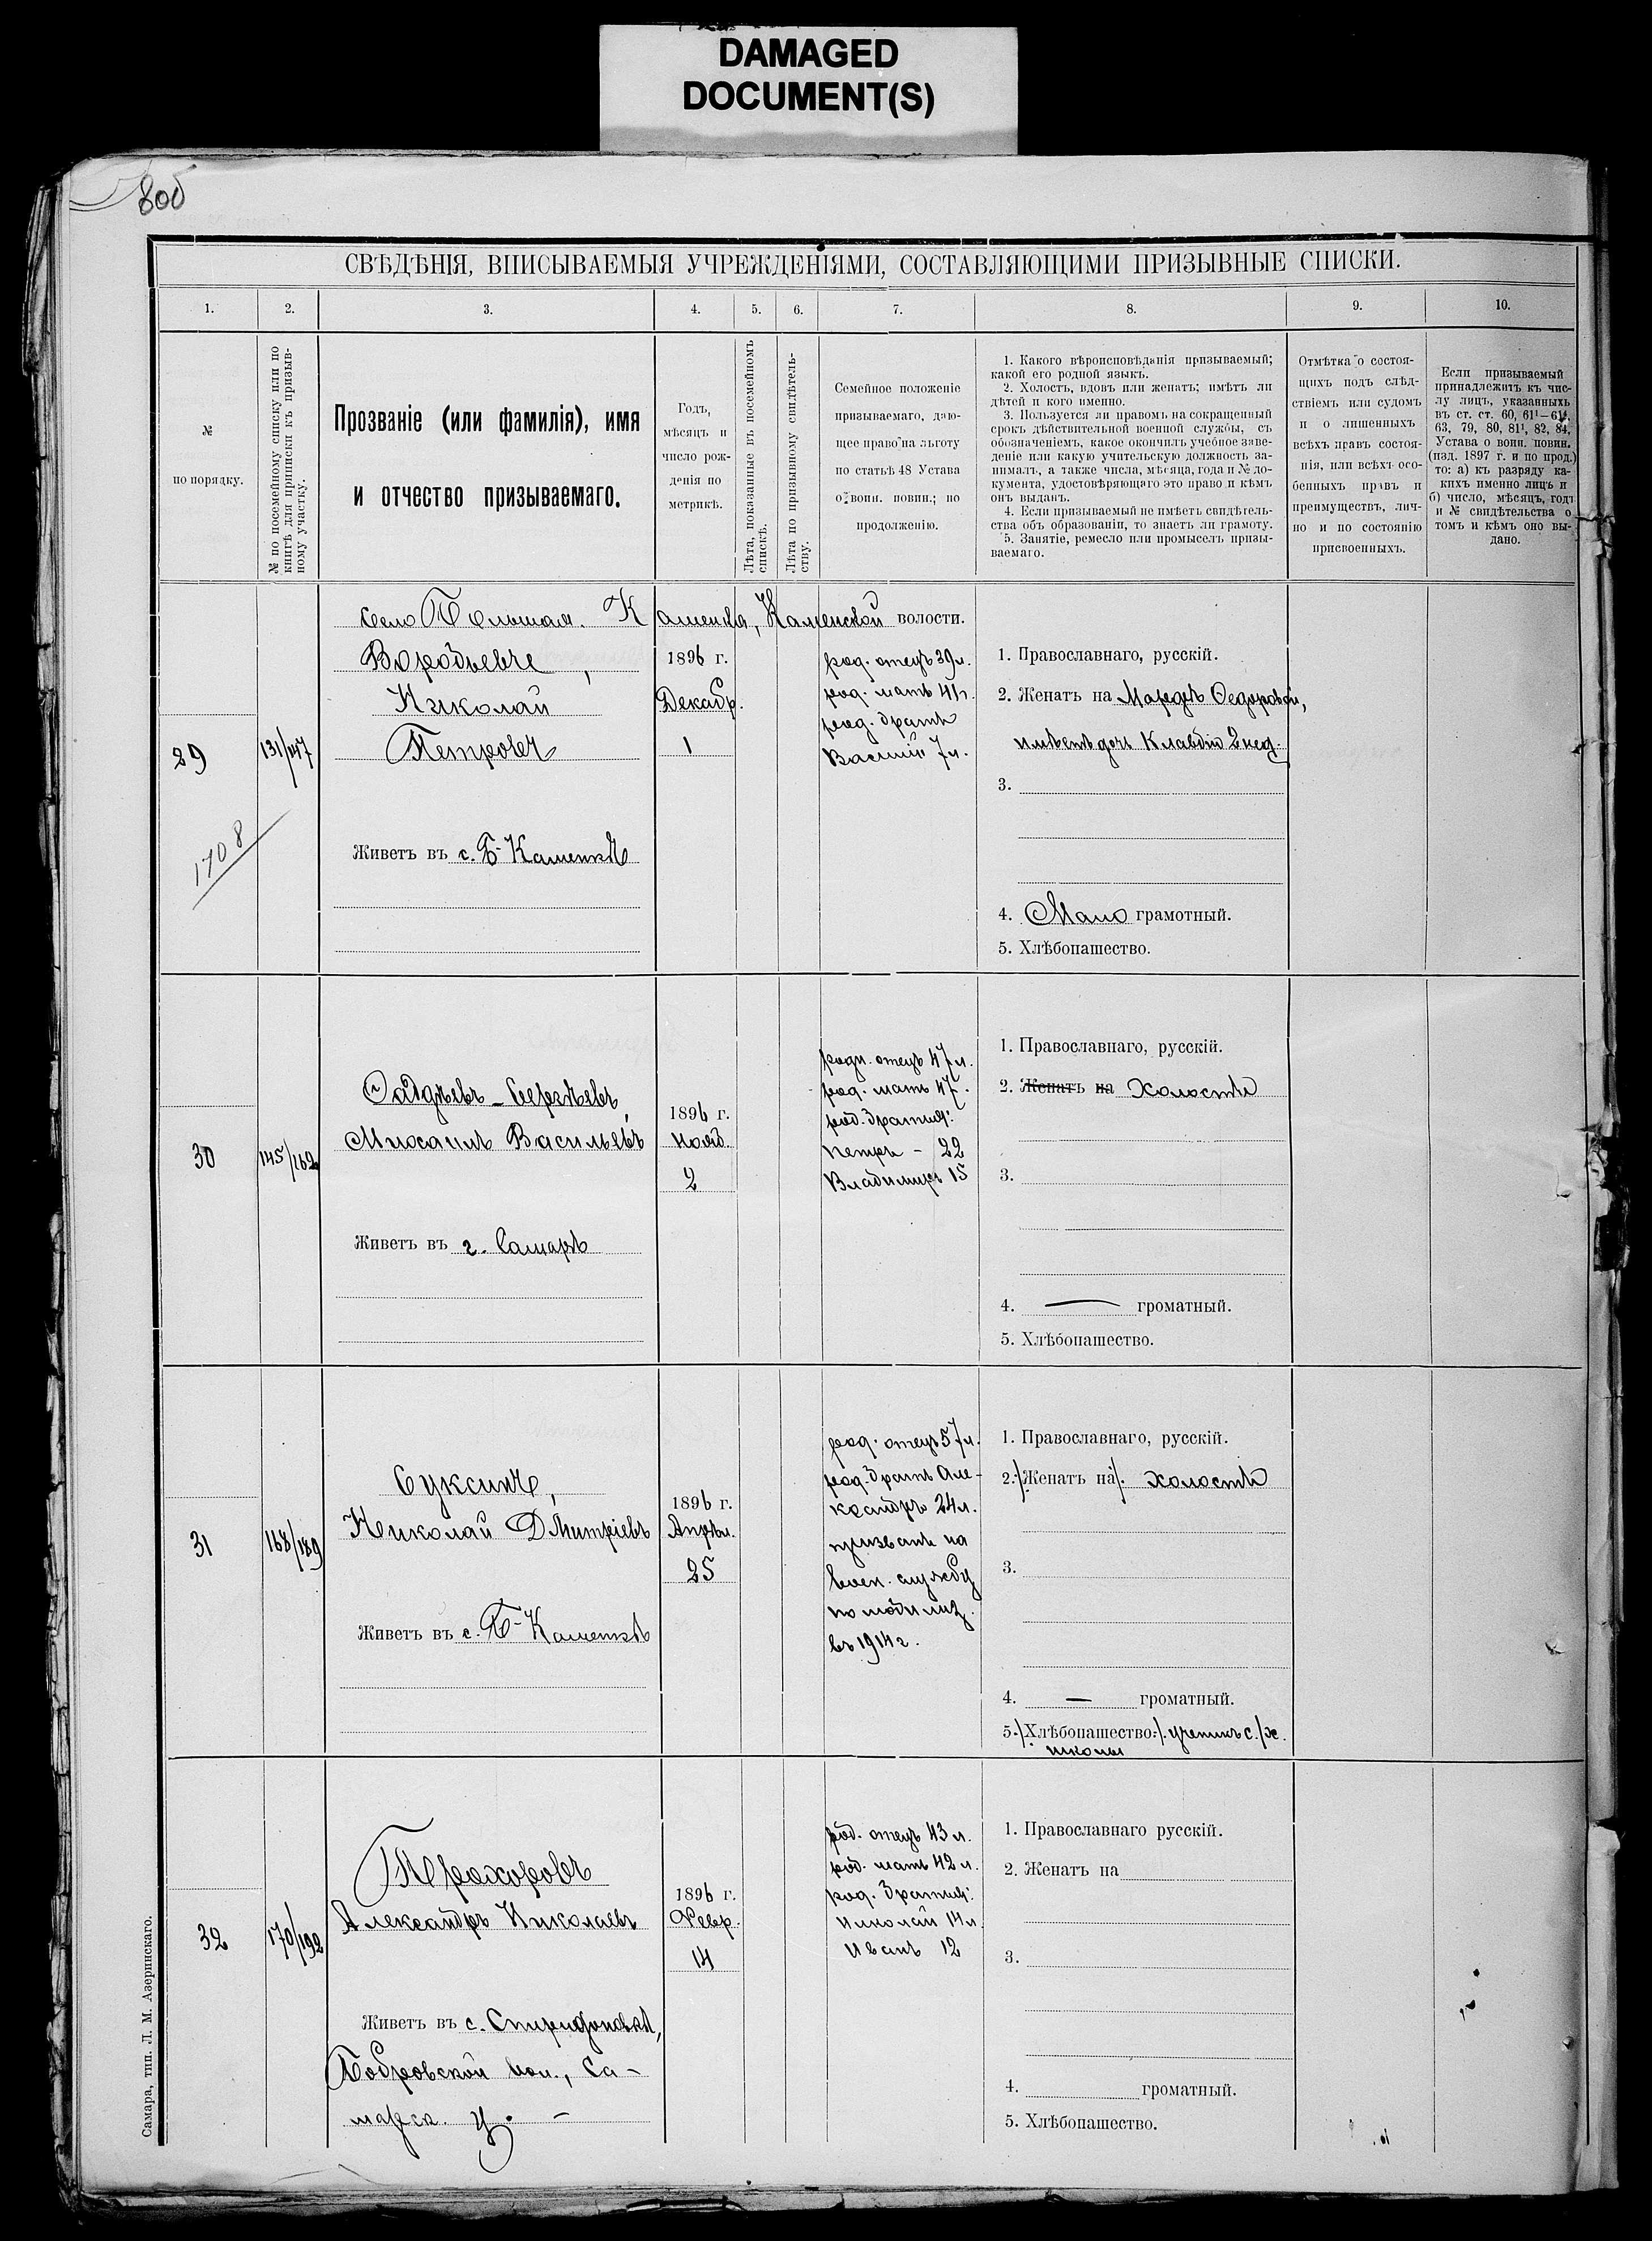 DAMAGED
DOCUMENT(S)
800
СВѢДѢНІЯ, ВПИСЫВАЕМЫЯ УЧРЕЖДЕНІЯМИ, СОСТАВЛЯЮЩИМИ ПРИЗЫВНЫЕ СПИСКИ.
1. 2. 3. 4. 5. 6. 7. 8. 9. 10.
№
по порядку.
№ по посемейному списку или по
книгѣ для приписки къ призыв-
ному участку.
Прозваніе (или фамилія), имя
и отчество призываемаго.
Годъ,
мѣсяцъ и
число рож-
денія по
метрикѣ.
Лѣта, показанные въ посемейномъ
спискѣ.
Лѣта по призывному свидѣтель-
ству.
Семейное положеніе
призываемаго, даю-
щее право на льготу
по статьѣ 48 Устава
о воин. повин.; по
продолженію.
1. Какого вѣроисповѣданія призываемый;
какой его родной языкъ.
2. Холостъ, вдовъ или женатъ; имѣтъ ли
дѣтей и кого именно.
3. Пользуется ли правомъ на сокращенный
срокъ дѣйствительной военной службы, съ
обозначеніемъ, какое окончилъ учебное заве-
деніе или какую учительскую должность за-
нималъ, а также числа, мѣсяца, года и № до-
кумента, удостовѣряющаго это право и кѣмъ
онъ выданъ.
4. Если призываемый не имѣетъ свидѣтель-
ства объ образованіи, то знаетъ ли грамоту.
5. Занятіе, ремесло или промыселъ призы-
ваемаго.
Отмѣтка о состоя-
щихъ подъ слѣд-
ствіемъ или судомъ
и о лишенныхъ
всѣхъ правъ состоя-
нія, или всѣхъ осо-
бенныхъ правъ и
преимуществъ, лич-
но и по состоянію
присвоенныхъ.
Если призываемый
принадлежитъ къ чис-
лу лицъ, указанныхъ
въ ст. ст. 60, 61¹—61⁴,
63, 79, 80, 81¹, 82, 84,
Устава о воин. повин.
(изд. 1897 г. и по прод.)
то: а) къ разряду ка-
кихъ именно лицъ и
б) число, мѣсяцъ, годъ
и № свидѣтельства о
томъ и кѣмъ оно вы-
дано.
село Большая Каменка, Каменской волости.
29
1708
131/147
Воробьевъ,
Николай
Петровъ
Живетъ въ с. Б-Каменкѣ
1896 г.
Декабр.
1
род. отецъ 39 л.
род. мать 41 л.
род. братъ
Василій 7 л.
1. Православнаго, русскій.
2. Женатъ на Марѳѣ Ѳедоровой,
имѣетъ дочь Клавдію 2 нед.
3.
4. Мало грамотный.
5. Хлѣбопашество.
30
145/162
Сергѣевъ,
Михаилъ Васильевъ
Живетъ въ г. Самарѣ
1896 г.
нояб.
2
родн. отецъ 47 л.
род. мать 47.
род. братья:
Петръ - 22
Владимиръ 15
1. Православнаго, русскій.
2. Женатъ на Холостъ
3.
4. — громатный.
5. Хлѣбопашество.
31
168/189
Суксинъ,
Николай Дмитріевъ
Живетъ въ с. Б-Каменкѣ
1896 г.
Апрѣл.
25
род. отецъ 57 л.
род. братъ Але-
ксандръ 24 л.
призванъ на
воен. службу
по мобилиз.
въ 1914 г.
1. Православнаго, русскій.
2. Женатъ на холостъ
3.
4. — громатный.
5. Хлѣбопашество. ученикъ с./х.
школы
32
170/192
Прохоровъ
Александръ Николаевъ
Живетъ въ с. Спиридоновкѣ,
Бобровской вол., Са-
марск. у. –
1896 г.
Февр.
14
род. отецъ 43 л.
род. мать 42 л.
род. братья:
Николай 14 л.
Иванъ 12
1. Православнаго русскій.
2. Женатъ на
3.
4. громатный.
5. Хлѣбопашество.
Самара, тип. Л. М. Азеринскаго.